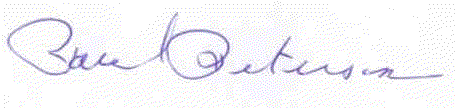 Paul Peterson